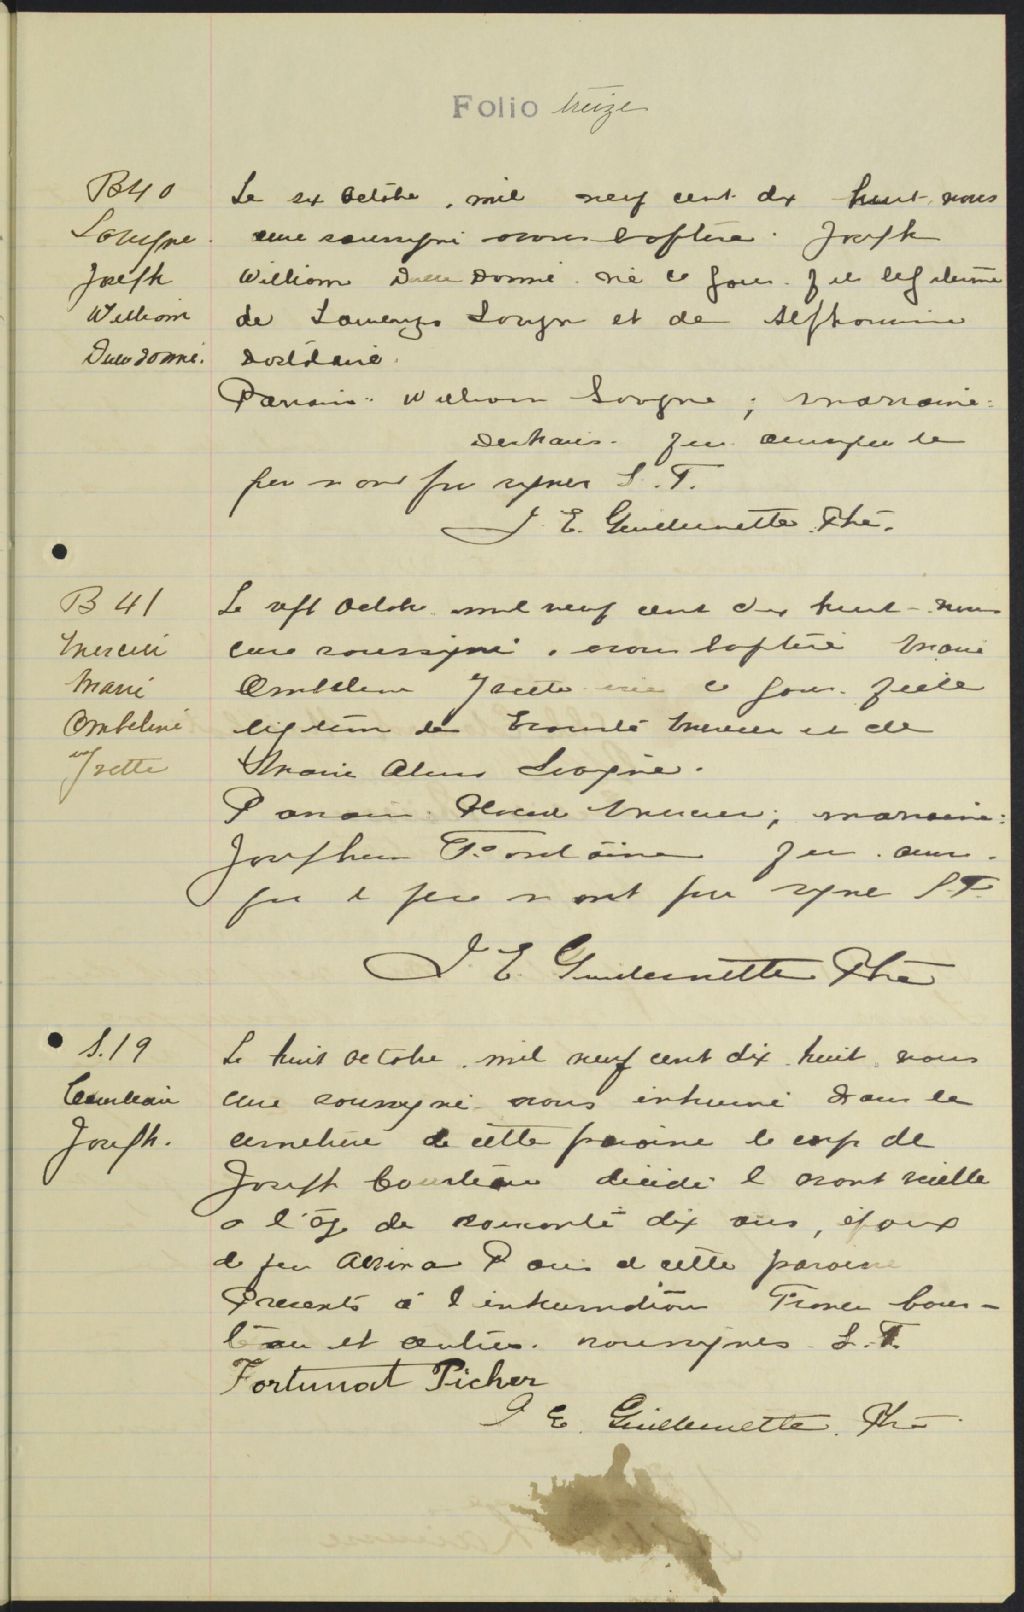 Folio treize
B 40
Le six octobre, mil neuf cent dix huit, nous
curé soussigné avons baptisé Joseph
Joseph
William Dieudonné né ce jour fils légitime
William
de Lorenzo et de Alphonsine
Dieudonné.
Parrain: William ; marraine:
père n'ont pu signer L. F.
J. E. Guillemette Ptre.
B 41
Le sept octobre mil neuf cent dix huit nous
Mercier
curé soussigné, avons baptisé Marie
Marie
Ombeline Yvette née ce jour fille
Ombeline
légitime de Mercier et de
Yvette
Marie
Parrain: Mercier; marraine:
Josephine Fontaine
et père n'ont pu signer L. F.
J. E. Guillemette Ptre
S. 19
Le huit octobre mil neuf cent dix huit nous
Courteau
curé soussigné avons inhumé dans le
Joseph.
cimetière de cette paroisse le corps de
Joseph Courteau décédé l'avant veille
à l'âge de soixante dix ans, époux
de feu Alvina de cette paroisse
Présents à l'inhumation Cour-
teau et autres soussignés L. F.
Fortunat Picher
J. E. Guillemette Ptre